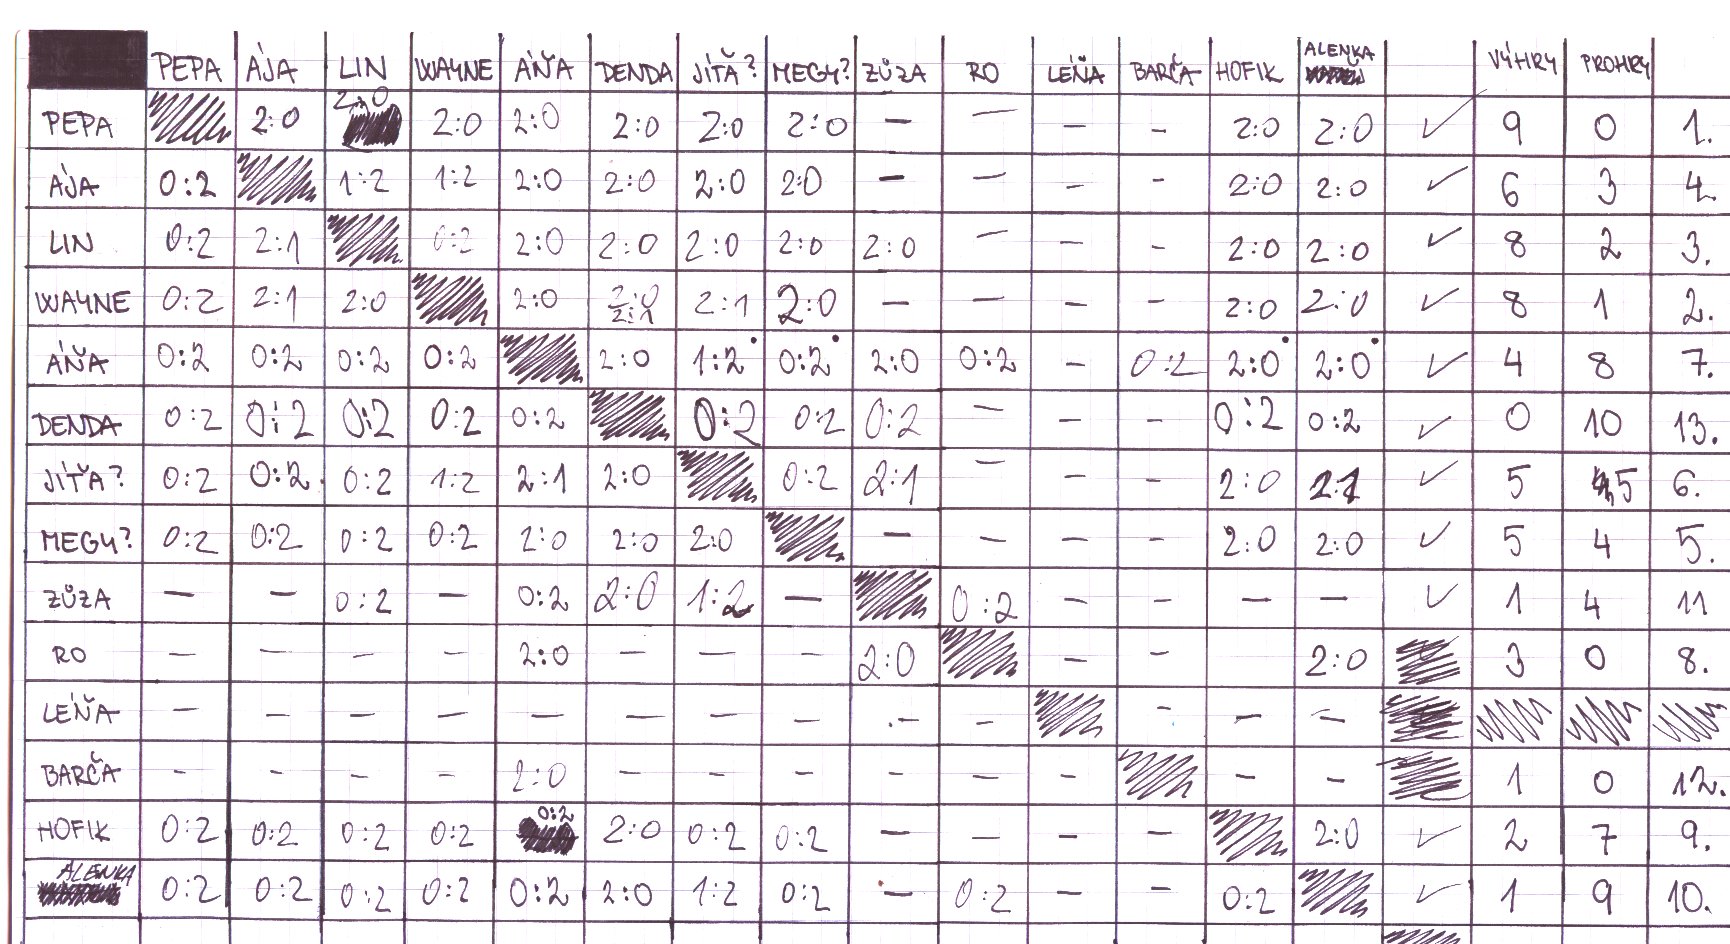 PEPA ÁJA LIN WAYNE ÁŇA DENDA JÍŤA? MEGY? ZŮZA RO LÉŇA BARČA HOFIK ALENKA VÝHRY PROHRY
PEPA 2:0 2:0 2:0 2:0 2:0 2:0 2:0 – – – – 2:0 2:0 ✓ 9 0 1.
ÁJA 0:2 1:2 1:2 2:0 2:0 2:0 2:0 – – – – 2:0 2:0 ✓ 6 3 4.
LIN 0:2 2:1 0:2 2:0 2:0 2:0 2:0 2:0 – – – 2:0 2:0 ✓ 8 2 3.
WAYNE 0:2 2:1 2:0 2:0 2:1 2:0 – – – – 2:0 2:0 ✓ 8 1 2.
ÁŇA 0:2 0:2 0:2 0:2 2:0 1:2 0:2 2:0 0:2 – 0:2 2:0 2:0 ✓ 4 8 7.
DENDA 0:2 0:2 0:2 0:2 0:2 0:2 0:2 0:2 – – – 0:2 0:2 ✓ 0 10 13.
JÍŤA? 0:2 0:2 0:2 1:2 2:1 2:0 0:2 2:1 – – – 2:0 2:1 ✓ 5 5 6.
MEGY? 0:2 0:2 0:2 0:2 2:0 2:0 2:0 – – – – 2:0 2:0 ✓ 5 4 5.
ZŮZA – – 0:2 – 0:2 2:0 1:2 – 0:2 – – – – ✓ 1 4 11
RO – – – – 2:0 – – – 2:0 – – 2:0 3 0 8.
LÉŇA – – – – – – – – – – – – –
BARČA – – – – 2:0 – – – – – – – – 1 0 12.
HOFIK 0:2 0:2 0:2 0:2 0:2 2:0 0:2 0:2 – – – – 2:0 ✓ 2 7 9.
ALENKA 0:2 0:2 0:2 0:2 0:2 2:0 1:2 0:2 – 0:2 – – 0:2 ✓ 1 9 10.